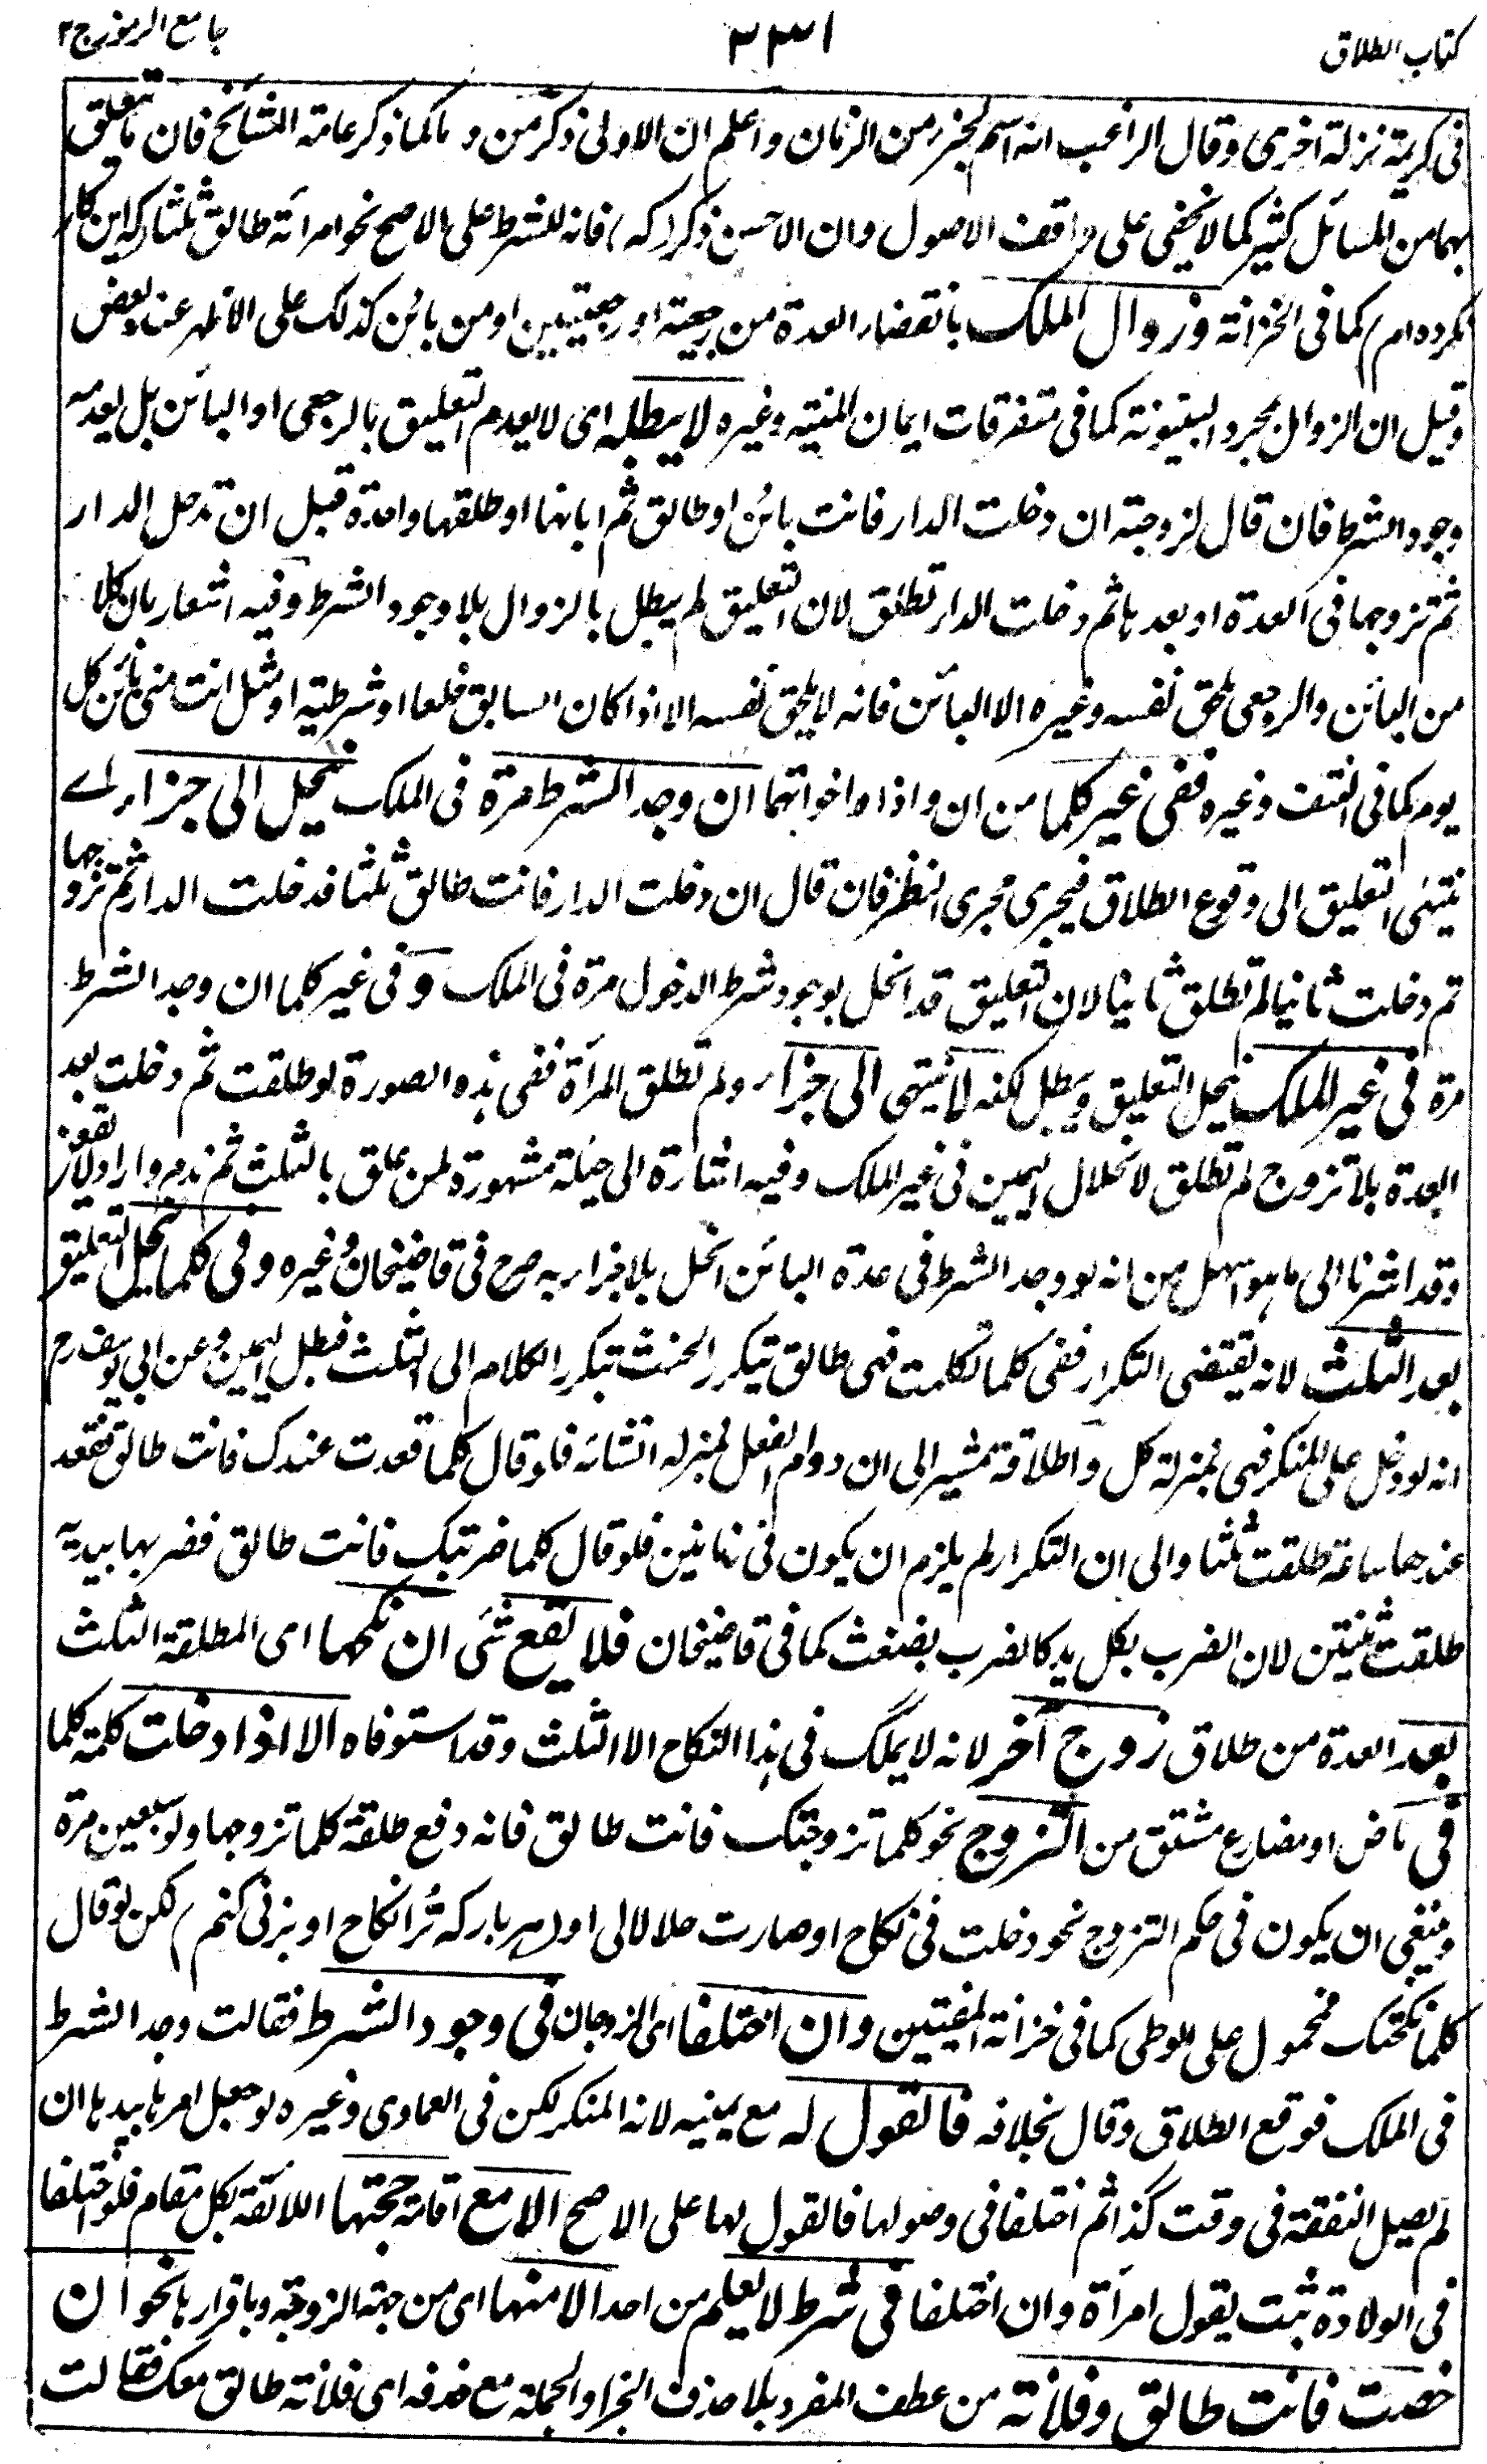 كتاب الطلاق
٣٣١
جامع الرموز ج٢
فى كريمة نزلة اخرى وقال الراغب انه اسم لجزء من الزمان واعلم ان الاولى ذكر من وما كما ذكر عامة المشائخ فان ما يتعلق
بهما من المسائل كثير كما لا يخفى على واقف الاصول وان الاحسن ذكر (كه) فانه للشرط على الاصح نحو امرأته طالق ثلثا (كه اين كار
نكرده ام) كما فى الخزانة وزوال الملك بانقضاء العدة من رجعية او رجعيتين او من بائن كذلك على الاظهر عند بعض
وقيل ان الزوال بمجرد البينونة كما فى متفرقات ايمان المنية وغيره لا يبطله اى لا يعدم التعليق بالرجعى او البائن بل يعدمه
وجود الشرط فان قال لزوجته ان دخلت الدار فانت بائن او طالق ثم ابانها او طلقها واحدة قبل ان تدخل الدار
ثم تزوجها فى العدة او بعدها ثم دخلت الدار تطلق لان التعليق لم يبطل بالزوال بلا وجود الشرط وفيه اشعار بان كلا
من البائن والرجعى يلحق نفسه وغيره الا البائن فانه لا يلحق نفسه الا اذا كان السابق خلعا او شرطية او مثل انت منى بائن كل
يوم كما فى النتف وغيره ففى غير كلما من ان واذا واخواتهما ان وجد الشرط مرة فى الملك ينحل الى جزاء اے
ينتهى التعليق الى وقوع الطلاق فيجرى مجرى النظر فان قال ان دخلت الدار فانت طالق ثلثا فدخلت الدار ثم تزوجها
ثم دخلت ثانيا لم تطلق ثانيا لان التعليق قد انحل بوجود شرط الدخول مرة فى الملك و فى غير كلما ان وجد الشرط
مرة فى غير الملك ينحل التعليق ويبطل لكنه لا ينتهى الى جزاء ولم تطلق المرأة ففى هذه الصورة لو طلقت ثم دخلت بعد
العدة بلا تزوج لم تطلق لانحلال اليمين فى غير الملك وفيه اشارة الى حيلة مشهورة لمن علق بالثلث ثم ندم واراد لا يقعن
وقد اشرنا الى ما هو اسهل من انه لو وجد الشرط فى عدة البائن انحل بلا جزاء به صرح فى قاضيخان وغيره وفى كلما ينحل التعليق
بعد الثلث لانه يقتضى التكرار ففى كلما تكلمت فهى طالق يتكرر الحنث بتكرر الكلام الى الثلث فبطل اليمين وعن ابى يوسف رح
انه لو دخل على المنكر فهى بمنزلة كل واطلاقه مشير الى ان دوام الفعل بمنزلة انشائه فلو قال كلما قعدت عندك فانت طالق فقعد
عندها ساعة طلقت ثلثا والى ان التكرار لم يلزم ان يكون فى زمانين فلو قال كلما ضربتك فانت طالق فضربها بيديه
طلقت ثنتين لان الضرب بكل يد كالضرب بضغث كما فى قاضيخان فلا يقع شئ ان نكحها اى المطلقة الثلث
بعد العدة من طلاق زوج آخر لانه لا يملك فى هذا النكاح الا الثلث وقد استوفاه الا اذا دخلت كلمة كلما
فى ماض او مضارع مشتق من التزوج نحو كلما تزوجتك فانت طالق فانه دفع طلقة كلما تزوجها ولو سبعين مرة
وينبغى ان يكون فى حكم التزوج نحو دخلت فى نكاح او صارت حلالا لى او (هر بار كه ترا نكاح او بزنى كنم) لكن لو قال
كلما نكحتك فمحمول على الوطى كما فى خزانة المفتيين وان اختلفا اى الزوجان فى وجود الشرط فقالت وجد الشرط
فى الملك فوقع الطلاق وقال بخلافه فالقول له مع يمينه لانه المنكر لكن فى العمادى وغيره لو جعل امرها بيدها ان
لم يصل النفقة فى وقت كذا ثم اختلفا فى وصولها فالقول لها على الاصح الا مع اقامة حجتها اللائقة بكل مقام فلو اختلفا
فى الولادة ثبت بقول امرأة وان اختلفا فى شرط لا يعلم من احد الا منها اى من جهة الزوجة وباقرارها نحو ان
حضت فانت طالق وفلانة من عطف المفرد بلا حذف الخبر او الجملة مع حذفه اى فلانة طالق معك فقالت